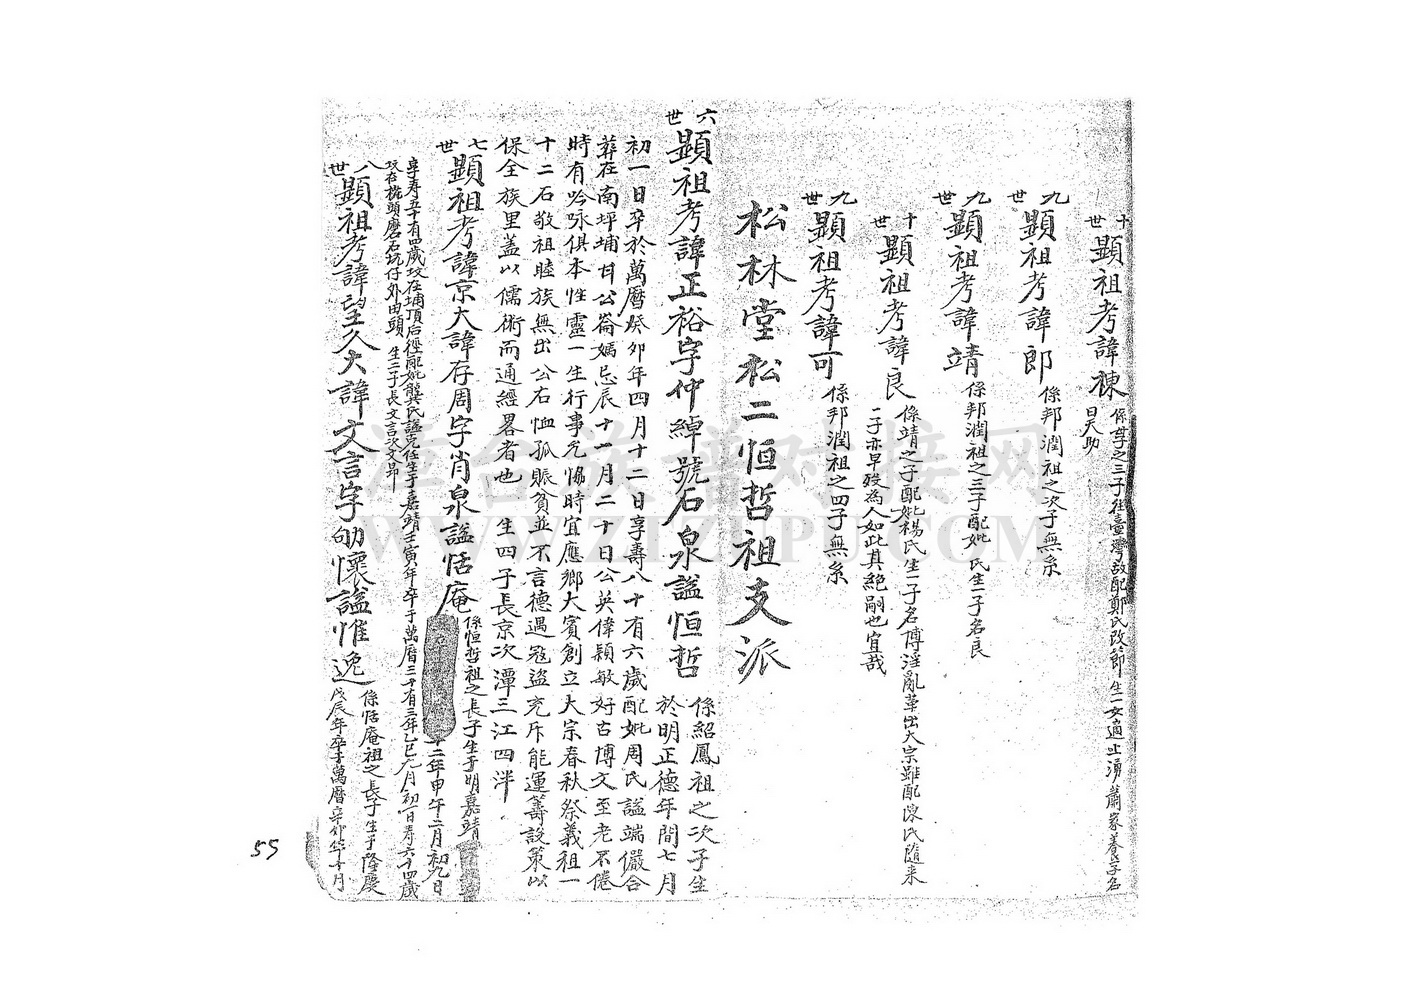 十世
顯祖考諱棟
係孕之三子往臺灣故配鄭氏改節生一女適上湧蕭家養子名
曰天助
九世
顯祖考諱郎
係邦潤祖之次子無系
九世
顯祖考諱靖
係邦潤祖之三子配妣氏生一子名良
十世
顯祖考諱良
係靖之子配妣楊氏生一子名傅淫亂革出大宗雖配陳氏隨來
一子亦早歿為人如此其絕嗣也宜哉
九世
顯祖考諱可
係邦潤祖之四子無系
松林堂松二恒哲祖支派
六世
顯祖考諱正裕字仲綽號石泉謚恒哲
係紹鳳祖之次子生
於明正德年間七月
初一日卒於萬曆癸卯年四月十二日享壽八十有六歲配妣周氏謚端儼合
葬在南坪埔甘公崙媽忌辰十一月二十日公英偉穎敏好古博文至老不倦
時有吟咏俱本性靈一生行事允協時宜應鄉大賓創立大宗春秋祭義祖一
十二石敬祖睦族無出公右恤孤賑貧並不言德遇冠盜充斥能運籌設策以
保全族里蓋以儒術而通經畧者也 生四子長京次潭三江四泮
七世
顯祖考諱京大諱存周字肖泉謚恬庵
係恒哲祖之長子生于明嘉靖
十二年甲午二月初九日
享寿五十有四歲坟在埔頂后徑配妣龔氏謚克任生于嘉靖壬寅年卒于萬曆三十有三年乙巳九月初一日寿六十四歲
坟在梳頭磨石坑仔外田頭 生二子長文言次文昻
八世
顯祖考諱望久大諱文言字劬懷謚惟逸
係恬庵祖之長子生于隆慶
戊辰年卒于萬曆辛卯年十月
漳台族譜对接网
WWW.ZTZUPU.COM
55